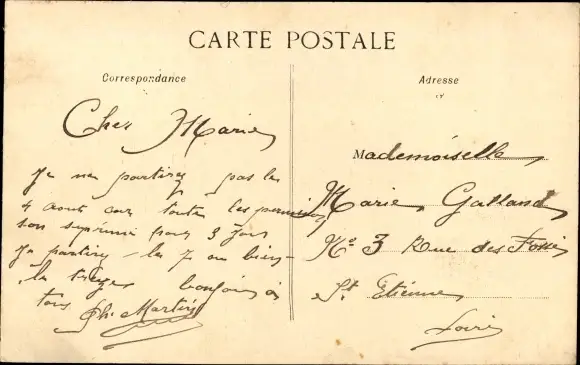 CARTE POSTALE
Correspondance
Adresse
Cher Marie
Je ne partirez pas le
4 aout car toutes les permission
son suprimé pour 3 jours
Je partirez le 7 ou bien
le treize bonjour a
tous Ph. Martin
Mademoiselle
Marie Galland
No 3 Rue des Fossé
St Etienne
Loire